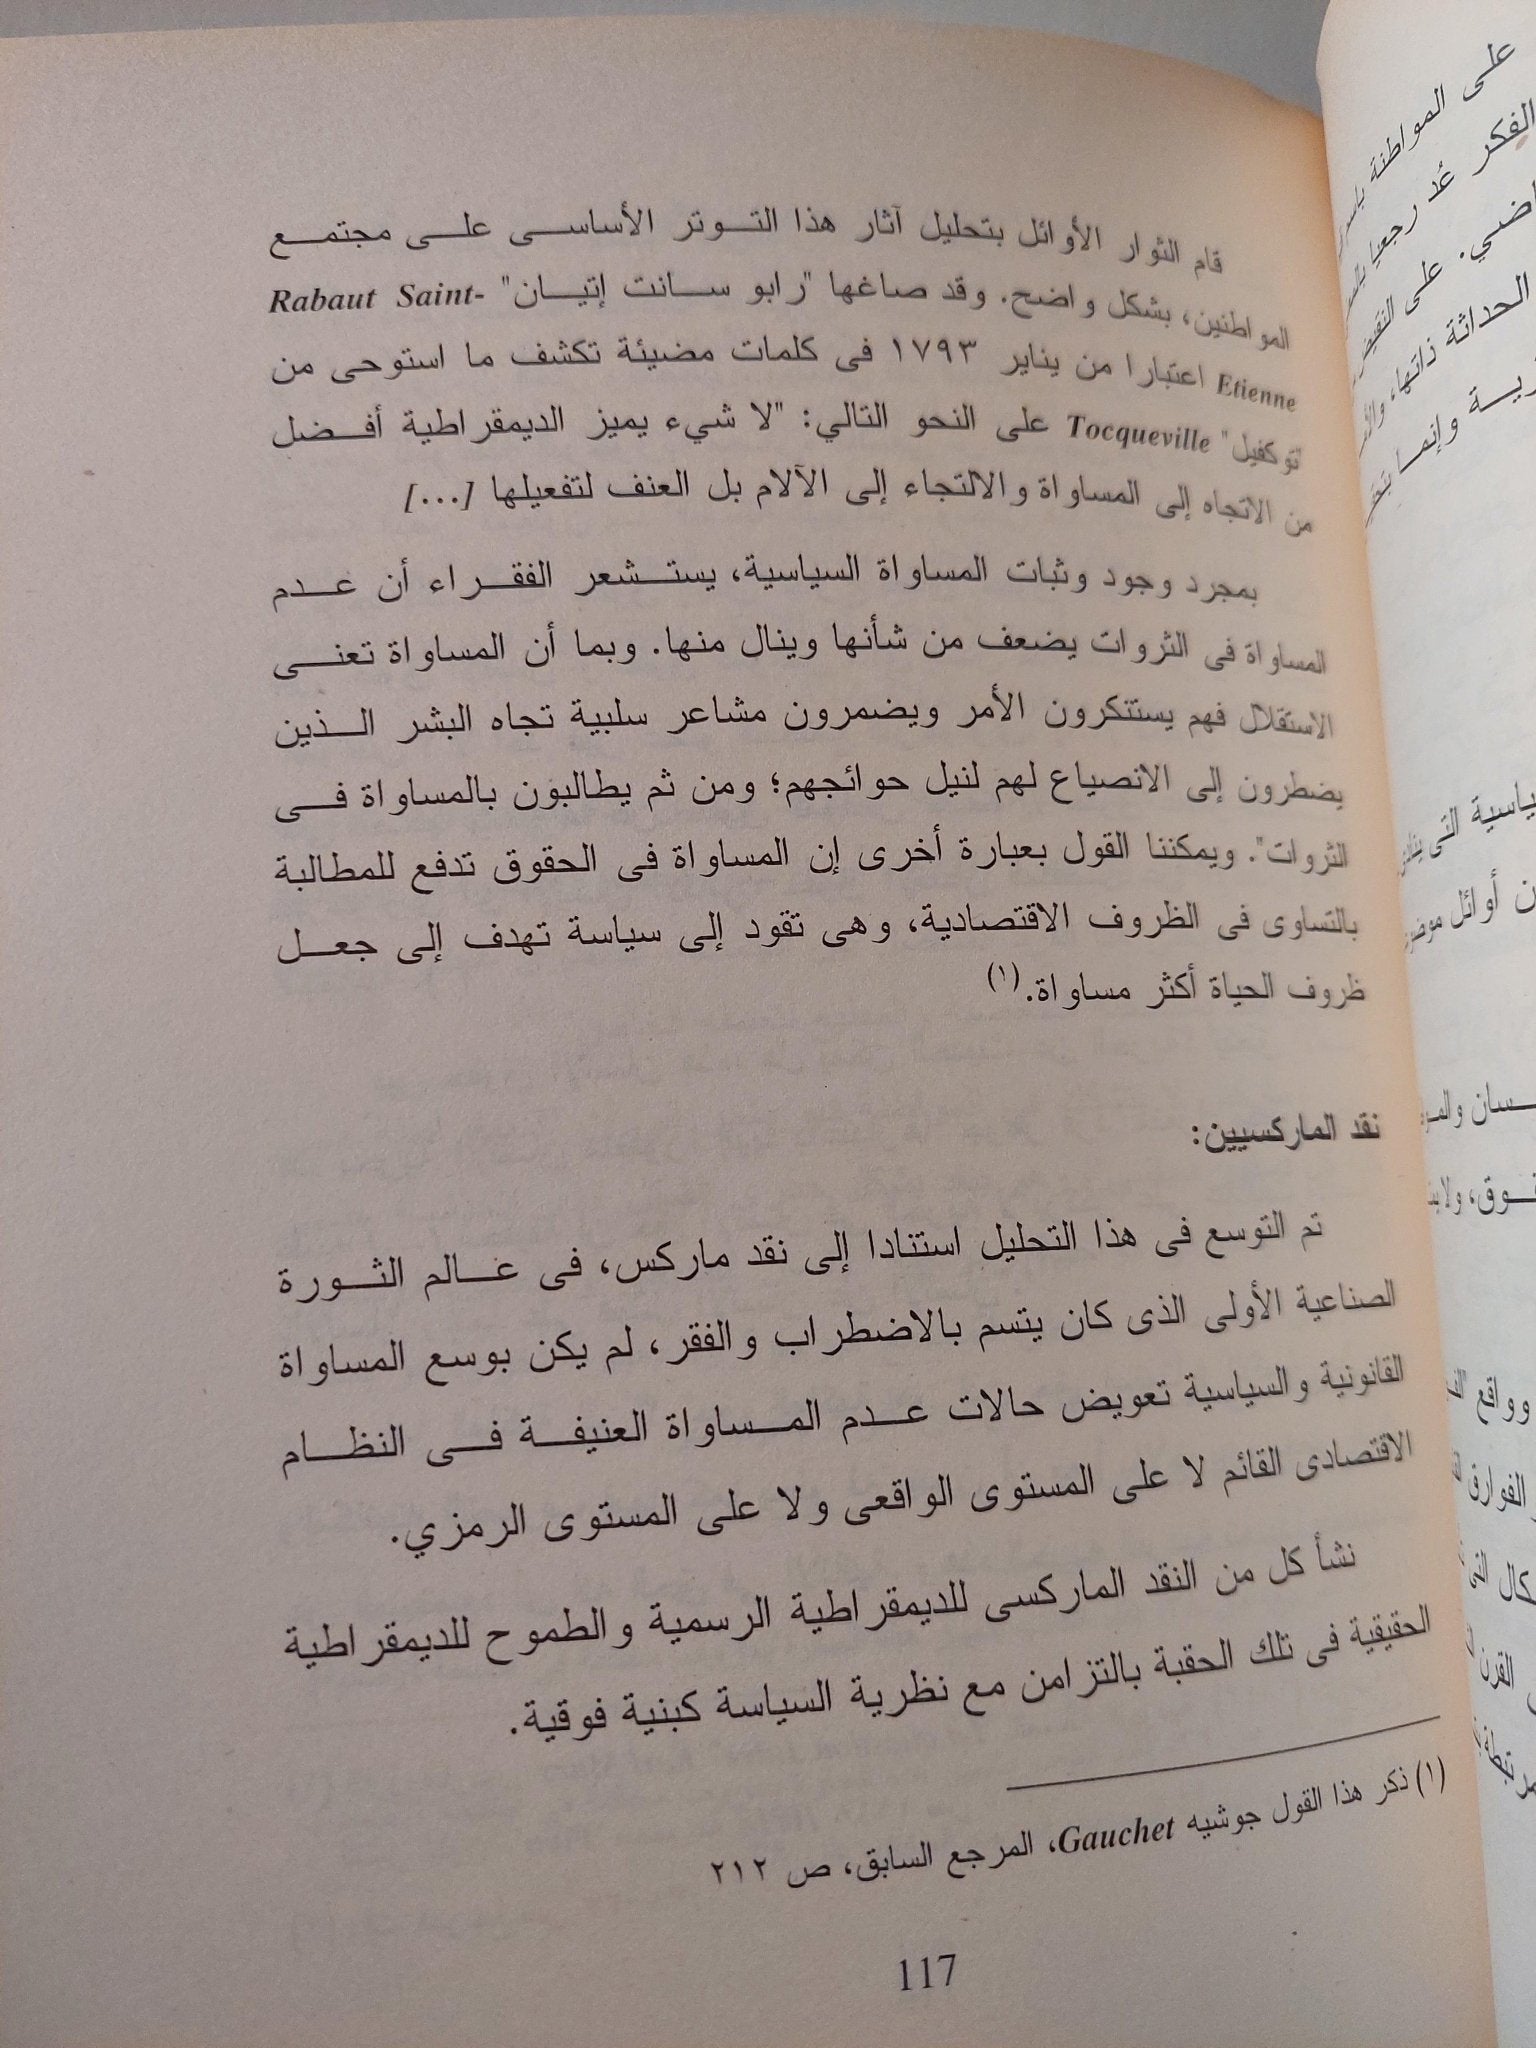 قام الثوار الأوائل بتحليل آثار هذا التوتر الأساسى على مجتمع
المواطنين، بشكل واضح. وقد صاغها "رابو سانت إتيان" Rabaut Saint-
Etienne اعتبارا من يناير ١٧٩٣ فى كلمات مضيئة تكشف ما استوحى من
"توكفيل" Tocqueville على النحو التالي: "لا شيء يميز الديمقراطية أفضل
من الاتجاه إلى المساواة والالتجاء إلى الآلام بل العنف لتفعيلها [...]
بمجرد وجود وثبات المساواة السياسية، يستشعر الفقراء أن عدم
المساواة فى الثروات يضعف من شأنها وينال منها. وبما أن المساواة تعنى
الاستقلال فهم يستنكرون الأمر ويضمرون مشاعر سلبية تجاه البشر الذين
يضطرون إلى الانصياع لهم لنيل حوائجهم؛ ومن ثم يطالبون بالمساواة فى
الثروات". ويمكننا القول بعبارة أخرى إن المساواة فى الحقوق تدفع للمطالبة
بالتساوى فى الظروف الاقتصادية، وهى تقود إلى سياسة تهدف إلى جعل
ظروف الحياة أكثر مساواة.(١)
نقد الماركسيين:
تم التوسع فى هذا التحليل استنادا إلى نقد ماركس، فى عالم الثورة
الصناعية الأولى الذى كان يتسم بالاضطراب والفقر، لم يكن بوسع المساواة
القانونية والسياسية تعويض حالات عدم المساواة العنيفة فى النظام
الاقتصادى القائم لا على المستوى الواقعى ولا على المستوى الرمزي.
نشأ كل من النقد الماركسى للديمقراطية الرسمية والطموح للديمقراطية
الحقيقية فى تلك الحقبة بالتزامن مع نظرية السياسة كبنية فوقية.
(١) ذكر هذا القول جوشيه Gauchet، المرجع السابق، ص ٢١٢
117
على المواطنة
الفكر عُد رجعيا
على النقيض
الحداثة ذاتها،
وإنما
التى
أوائل
ووواقع
الفوارق
القرن